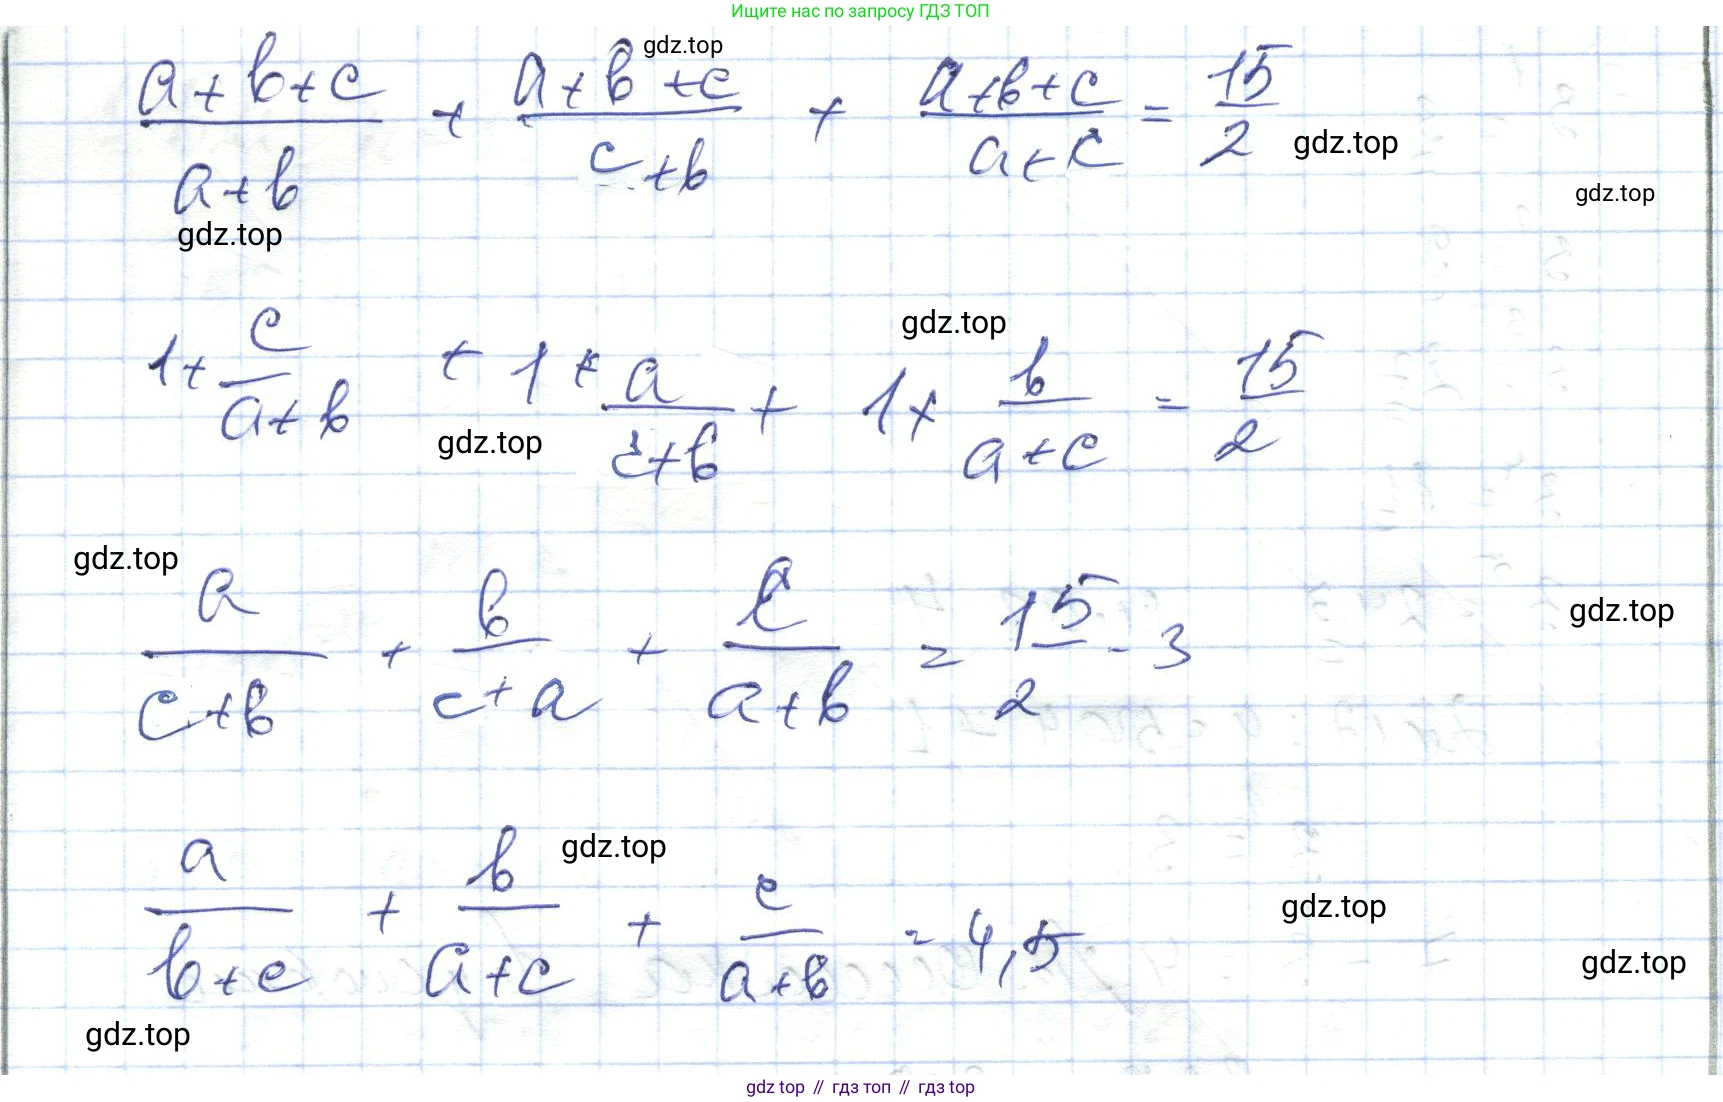 Ищите нас по запросу ГДЗ ТОП
(a+b+c)/(a+b) + (a+b+c)/(c+b) + (a+b+c)/(a+c) = 15/2
gdz.top
gdz.top
gdz.top
gdz.top
1+ c/(a+b) + 1+ a/(c+b) + 1+ b/(a+c) = 15/2
gdz.top
gdz.top
gdz.top
a/(c+b) + b/(c+a) + c/(a+b) = 15/2 - 3
gdz.top
a/(b+c) + b/(a+c) + c/(a+b) = 4,5
gdz.top
gdz.top
gdz.top
gdz.top
gdz top // гдз топ // gdz top